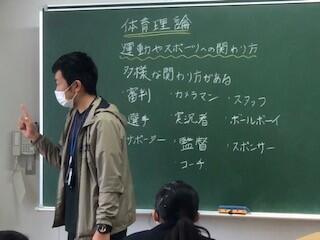 体育理論
運動やスポーツへの関わり方
多様な関わり方がある
・審判 ・カメラマン ・スタッフ
・選手 ・実況者 ・ボールボーイ
・サポーター ・監督 ・スポンサー
・コーチ